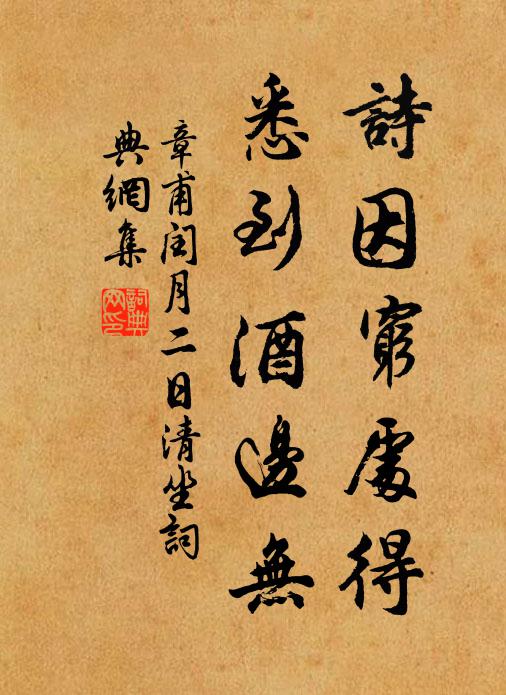 詩因窮處得
悉到酒邊無
章甫閏月二日清坐詞
典網集
詞典網印